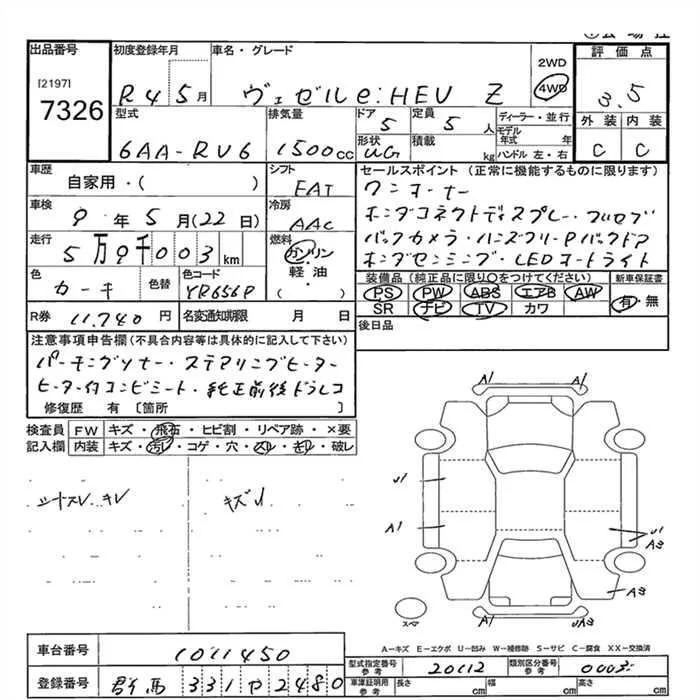 出品番号 初度登録年月 車名・グレード 2WD 評価点
[2197]
7326 R4 5月 ヴェゼル e:HEV Z 4WD 3.5
型式 排気量 ドア 定員 ディーラー・並行 外装 内装
6AA-RU6 1500cc 5 5人 モデル年式 年 C C
形状 積載
UG kg ハンドル 左・右
車歴 自家用・( ) シフト FAT セールスポイント (正常に機能するものに限ります)
ワンオーナー
車検 9年5月(22日) 冷房 AAC ホンダコネクトディスプレー・フルセグ
走行 5万9千003km 燃料 ガソリン バックカメラ・ハンズフリーPバックドア
軽油・( ) ホンダセンシング・LEDヘッドライト
色 カーキ 色替 色コード YR656P 装備品 (純正品に限り○をつけてください) 新車保証書
PS PW ABS エアB AW 有・無
SR ナビ TV カワ
R券 11,740円 名変通知期限 月 日 後日品
注意事項申告欄 (不具合内容等は具体的に記入して下さい)
パーキングソナー・ステアリングヒーター
ヒーター付コンビシート・純正前後ドラレコ
修復歴 有 [箇所 ]
検査員 FW キズ・飛石・ヒビ割・リペア跡・×要
記入欄 内装 キズ・汚レ・コゲ・穴・スレ・キレ・破レ
シートスレ、キレ キズ
A1 A1
U1
A1 U1
A3
A3
U1 UA3
スペア
A−キズ E−エクボ U−凹み W−補修跡 S−サビ C−腐食 XX−交換済
車台番号 1011450
型式指定番号 参考 20112 類別区分番号 参考 0003
登録番号 群馬 331 や 2480
車庫証明用 参考 長さ cm 幅 cm 高さ cm